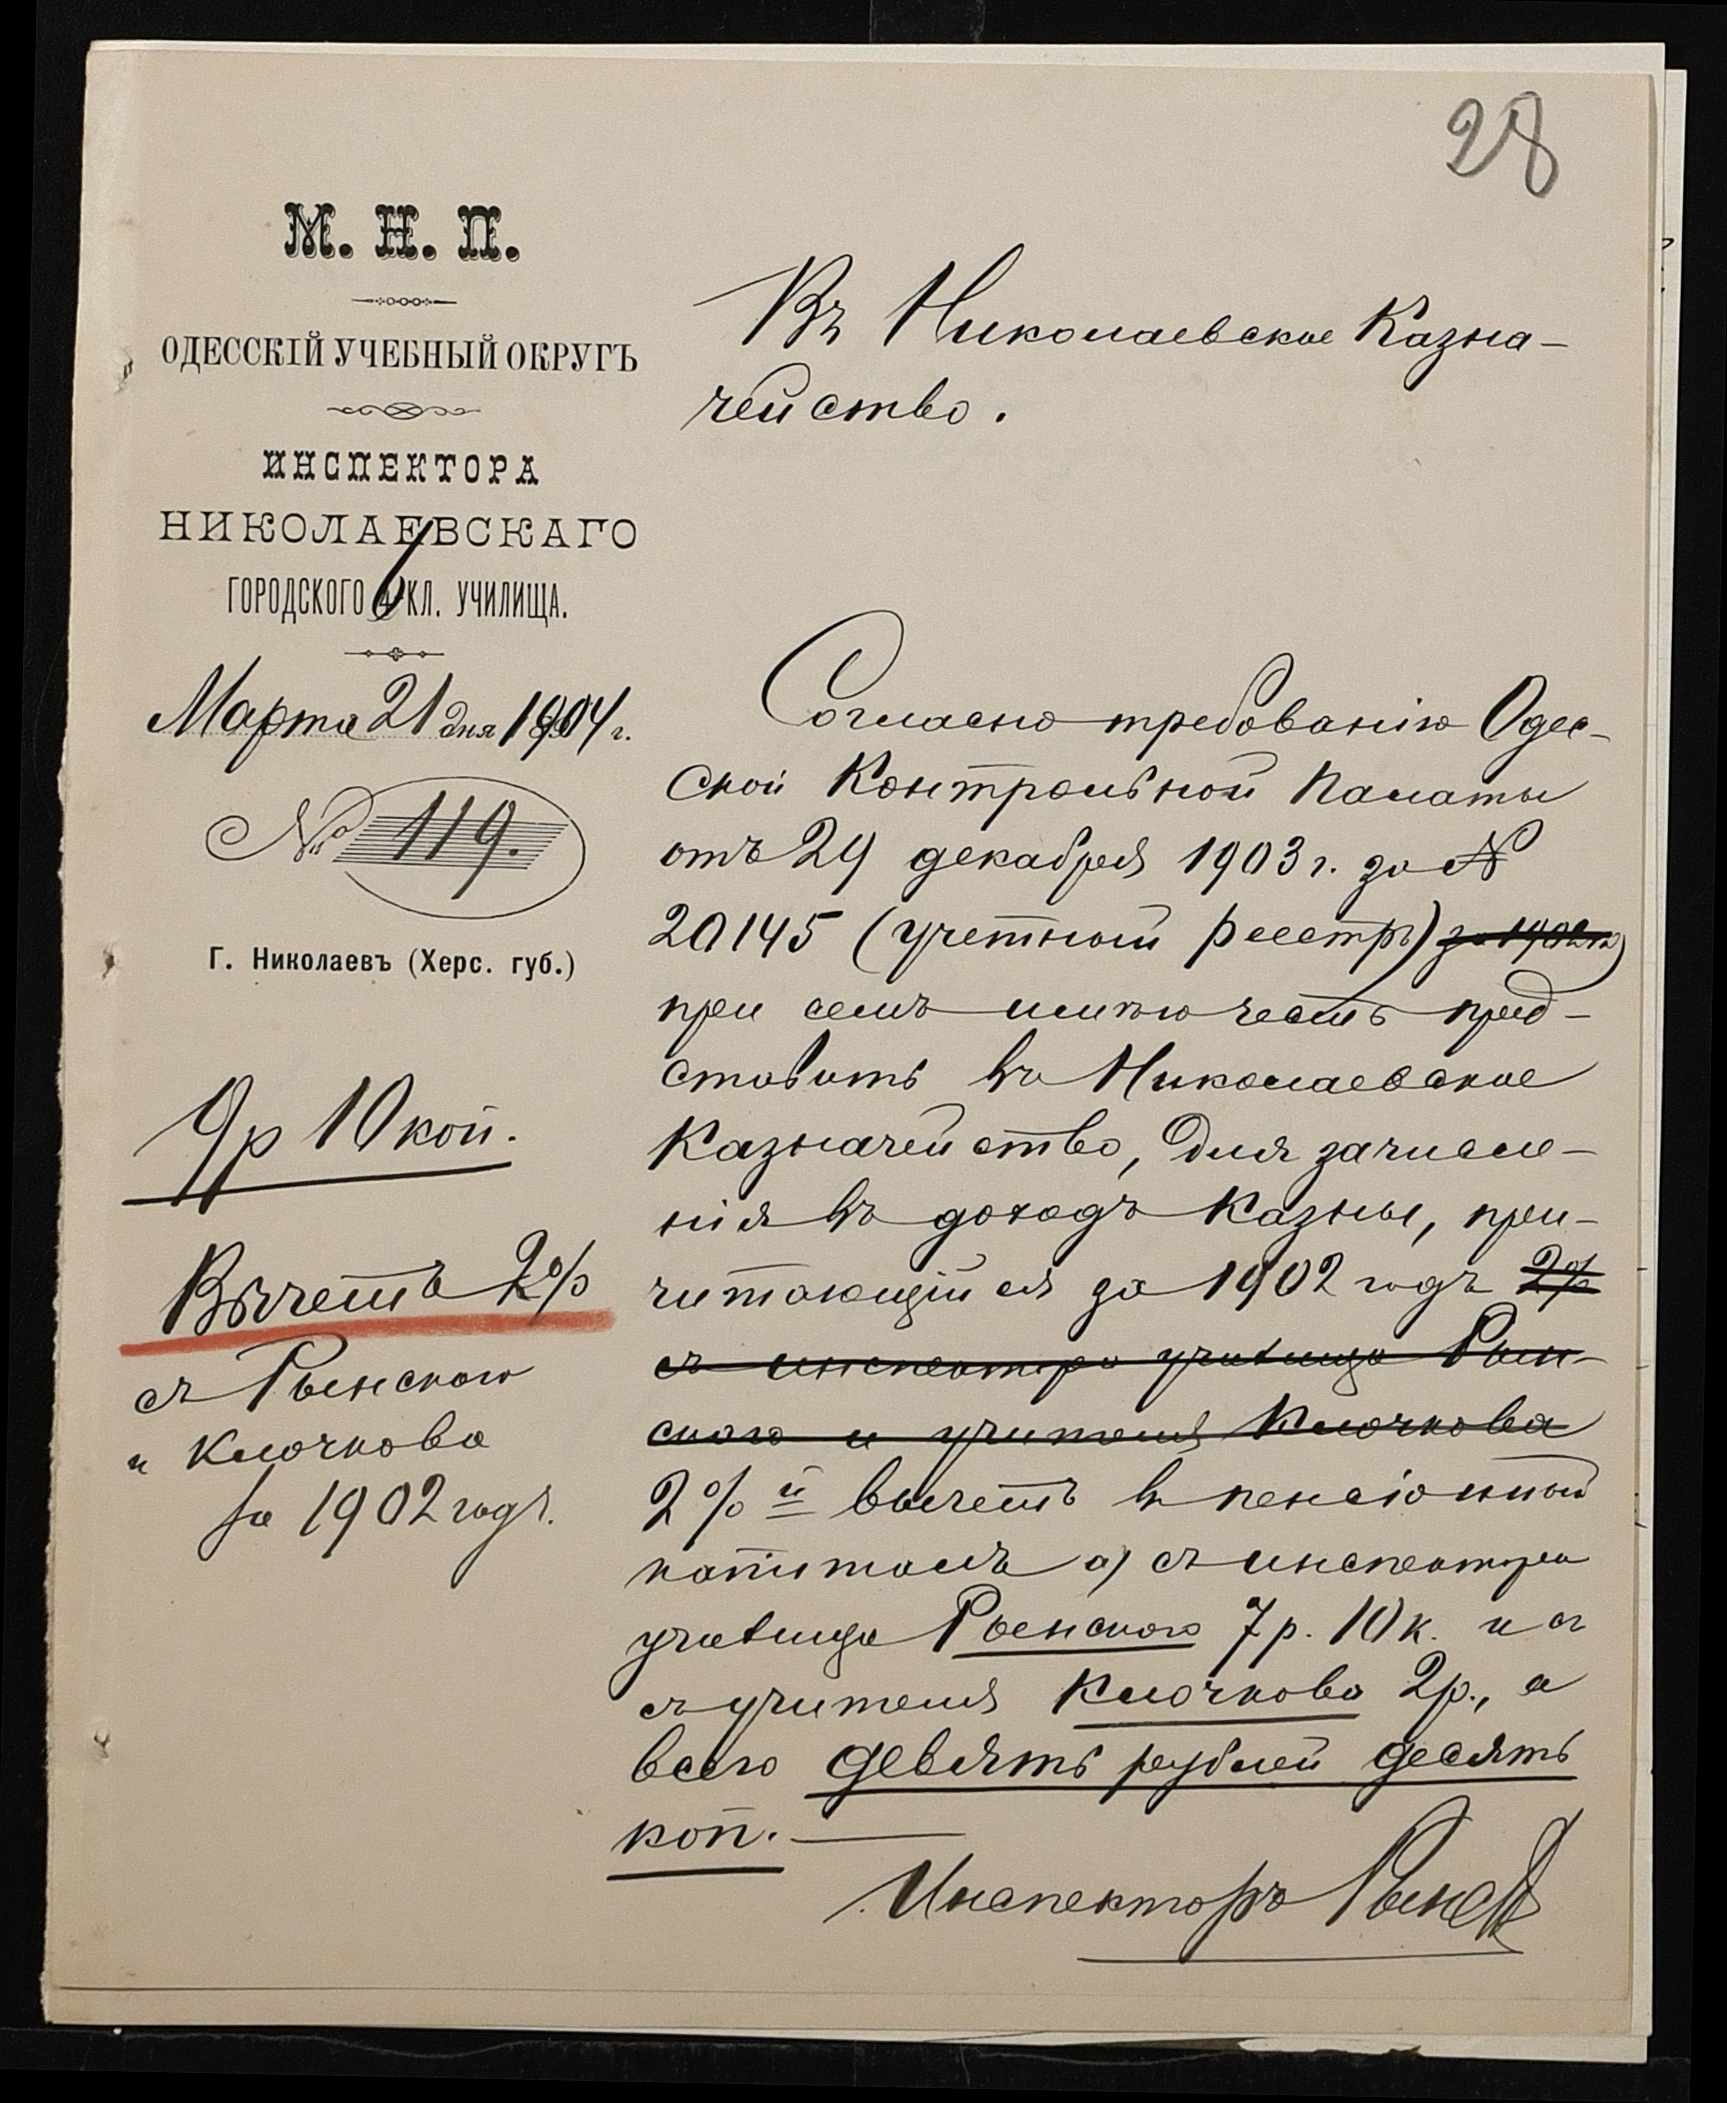 28
М. Н. П.
ОДЕССКІЙ УЧЕБНЫЙ ОКРУГЪ
ИНСПЕКТОРА
НИКОЛАЕВСКАГО
ГОРОДСКОГО 6 КЛ. УЧИЛИЩА.
Марта 21 дня 1904 г.
№ 119.
Г. Николаевъ (Херс. губ.)
9р 10 коп.
Вычетъ 2%
съ Рынскаго
и Клочкова
за 1902 годъ.
Въ Николаевское Казна-
чейство.
Согласно требованію Одес-
ской Контрольной Палаты
отъ 29 декабря 1903 г. за №
20145 (учетный реестръ) за 1902 г)
при семъ имѣю честь пред-
ставить въ Николаевское
Казначейство, для зачисле-
нія въ доходъ казны, при-
читающійся за 1902 годъ 2%
съ инспектора училища Рын-
скаго и учителя Клочкова
2% й вычетъ въ пенсіонный
капиталъ а) съ инспектора
училища Рынскаго 7 р. 10 к. и
съ учителя Клочкова 2 р., а
всего девять рублей десять
коп.
Инспекторъ Рынск